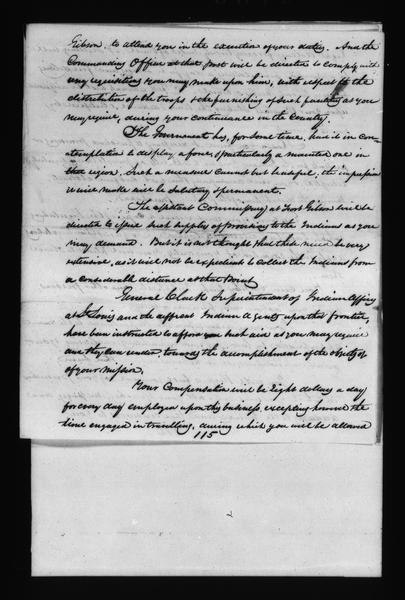 Gibson, to attend you in the execution of your duties. And the
Commanding Officer at that post will be directed to comply with
any requisitions you may make upon him, with respect to the
distribution of the troops & the furnishing of such facilities as you
may require, during your continuance in the Country.
The Government has, for some time, had it in con-
templation to display a force, & particularly a mounted one in
that region. Such a measure cannot but be useful, the impression
it will make will be salutary & permanent.
The assistant Commissary at Fort Gibson will be
directed to issue such supplies of provisions to the Indians as you
may demand. But it is not thought that these need be very
extensive, as it will not be expedient to collect the Indians from
a considerable distance at that point.
General Clark Superintendent of Indian Affairs
at St Louis and the different Indian Agents upon that frontier,
have been instructed to afford you such aid as you may require
and they can render towards the accomplishment of the objects of
of your mission.
Your Compensation will be Eight dollars a day
for every day employed upon this business, excepting however the
time engaged in travelling, during which you will be allowed
115